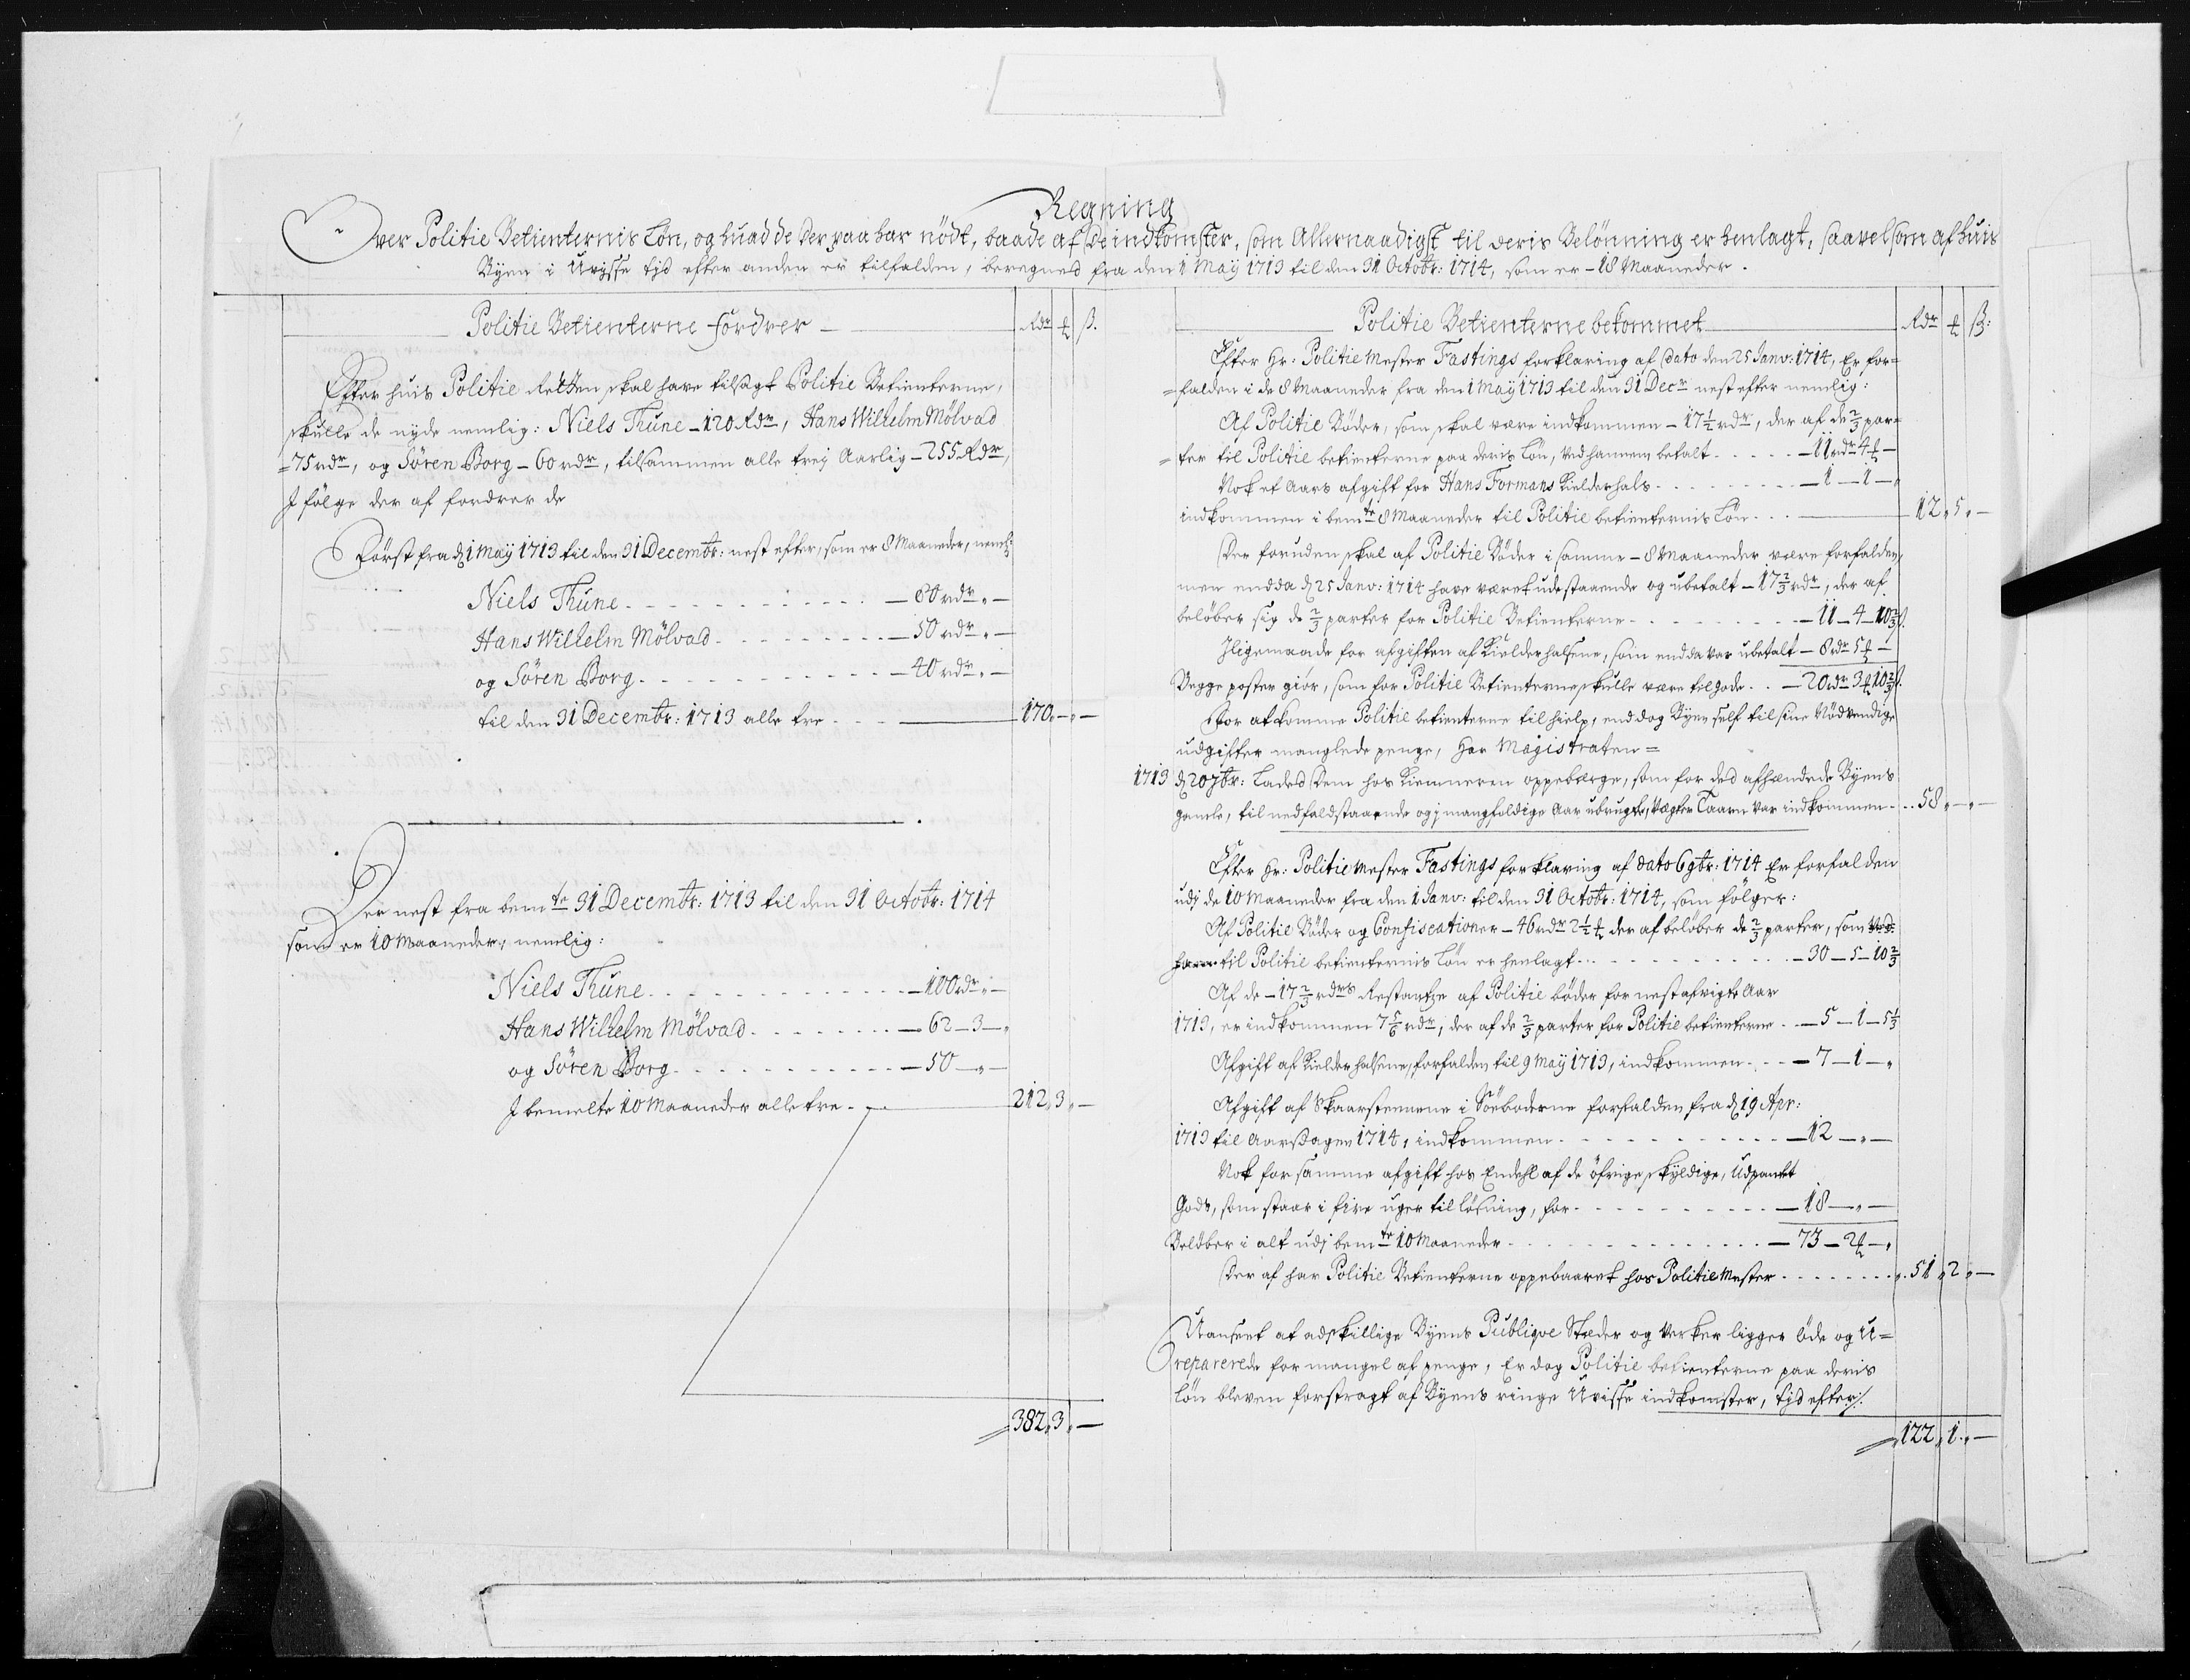 Regning
Over Politie Betienternis Løn, og huad de der paa har nødt, baade af de indkomster, som Allernaadigst til deris Belønning er henlagt, saavelsom af huis
Byen i Uvisse tid efter anden er tilfalden, beregned fra den 1 May 1713 til den 31 Octobr: 1714, som er - 18 Maaneder.
Politie Betienterne fordrer Rdr ß.
Efter huis Politie Retten skal have tilsagt Politie Betienterne,
skulle de nyde nemlig: Niels Thune - 120 Rdr, Hans Wilhelm Mölvad
- 75 rdr, og Sören Borg - 60 rdr, tilsammen alle trej Aarlig - 255 Rdr,
J følge der af fordrer de
Først fra d 1 May 1713 til den 31 Decembr: nest efter, som er 8 Maaneder, neml:
Niels Thune - 80 rdr „ -
Hans Wilhelm Mölvad - 50 rdr „ -
og Sören Borg - 40 rdr „ -
til den 31 Decembr: 1713 alle tre 170 „ - „ -
Der nest fra bemte 31 Decembr: 1713 til den 31 Octobr: 1714
som er 10 Maaneder, nemlig:
Niels Thune - 100 rdr „ -
Hans Wilhelm Mölvad - 62 - 3 - „
og Sören Borg - 50 - „ -
J bemelte 10 Maaneder alle tre 212 „ 3 „ -
382 „ 3 „ -
Politie Betienterne bekommet Rdr ß:
Efter Hr: Politie Mester Fastings forklaring af Dato den 25 Janv: 1714, Er for=
=falden i de 8 Maaneder fra den 1 May 1713 til den 31 Decr nest efter nemlig:
Af Politie Bøder, som skal være indkommen - 17 1/2 rdr, der af de 2/3 par=
=ter til Politie betienterne paa deris Løn, Ved hannem betalt - 11 rdr 4 -
Nok et Aars afgift for Hans Formans Kielderhals - 1 - 1 - „
indkommen i bemte 8 Maaneder til Politie betienternis Løn 12 „ 5 „ -
Der foruden skal af Politie Bøder i samme - 8 Maaneder være forfalden,
men endda d 25 Janv: 1714 have været udestaaende og ubetalt - 17 2/3 rdr, der af
beløber sig de 2/3 parter for Politie Betienterne - 11 - 4 - 10 2/3 ß.
Jligemaade for afgiften af Kielderhalsene, som endda var ubetalt - 8 rdr 5 -
Begge poster giør, som for Politie Betienterne skulle være tilgode - 20 rdr 3 10 2/3 ß.
For at komme Politie betienterne til hielp, end dog Byen self til sine Nødvendige
udgifter manglede penge, har Magistraten =
1713 d 20 7br: Laded Dem hos Kiemneren oppebærge, som for ded afhændede Byens
gamle, til nedfald staaende og j mangfoldige Aar ubrugte, Vagter Taarn var indkommen 58 „ - „ -
Efter Hr: Politie Mester Fastings forklaring af dato 6 9br: 1714 Er forfalden
udj de 10 Maaneder fra den 1 Janv: til den 31 Octobr: 1714, som følger:
Af Politie Bøder og Confiscationer - 46 rdr 2 1/2 der af beløber de 2/3 parter, som
til Politie betienternis Løn er henlagt - 30 - 5 - 10 2/3
Af de - 17 2/3 rdrs Restantze af Politie bøder for nest afvigte Aar
1713, er indkommen 7 5/6 rdr, der af de 2/3 parter for Politie betienterne - 5 - 1 - 5 1/3
Afgift af Kielderhalsene, forfalden til 9 May 1713, indkommen - 7 - 1 - „
Afgift af Skaarstenene i Söeboderne forfalden fra d 19 Apr:
1713 til Aarsdagen 1714, indkommen - 12 - „ -
Nok for samme afgift hos Endehl af de øfrige skyldige, Udpantet
Gods, som staar i fire uger til løsning, for - 18 - „ -
Beløber i alt udj bemte 10 Maaneder - 73 - 2 - „
Der af har Politie Betienterne oppebaaret hos Politie Mester 51 „ 2 „ -
Uanseet at adskillige Byens Publiqve Steder og Verker ligger øde og U=
reparerede for mangel af penge, Er dog Politie betienterne paa deris
Løn bleven forstragt af Byens ringe Uvisse indkomster, tid efter /.
122 „ 1 „ -